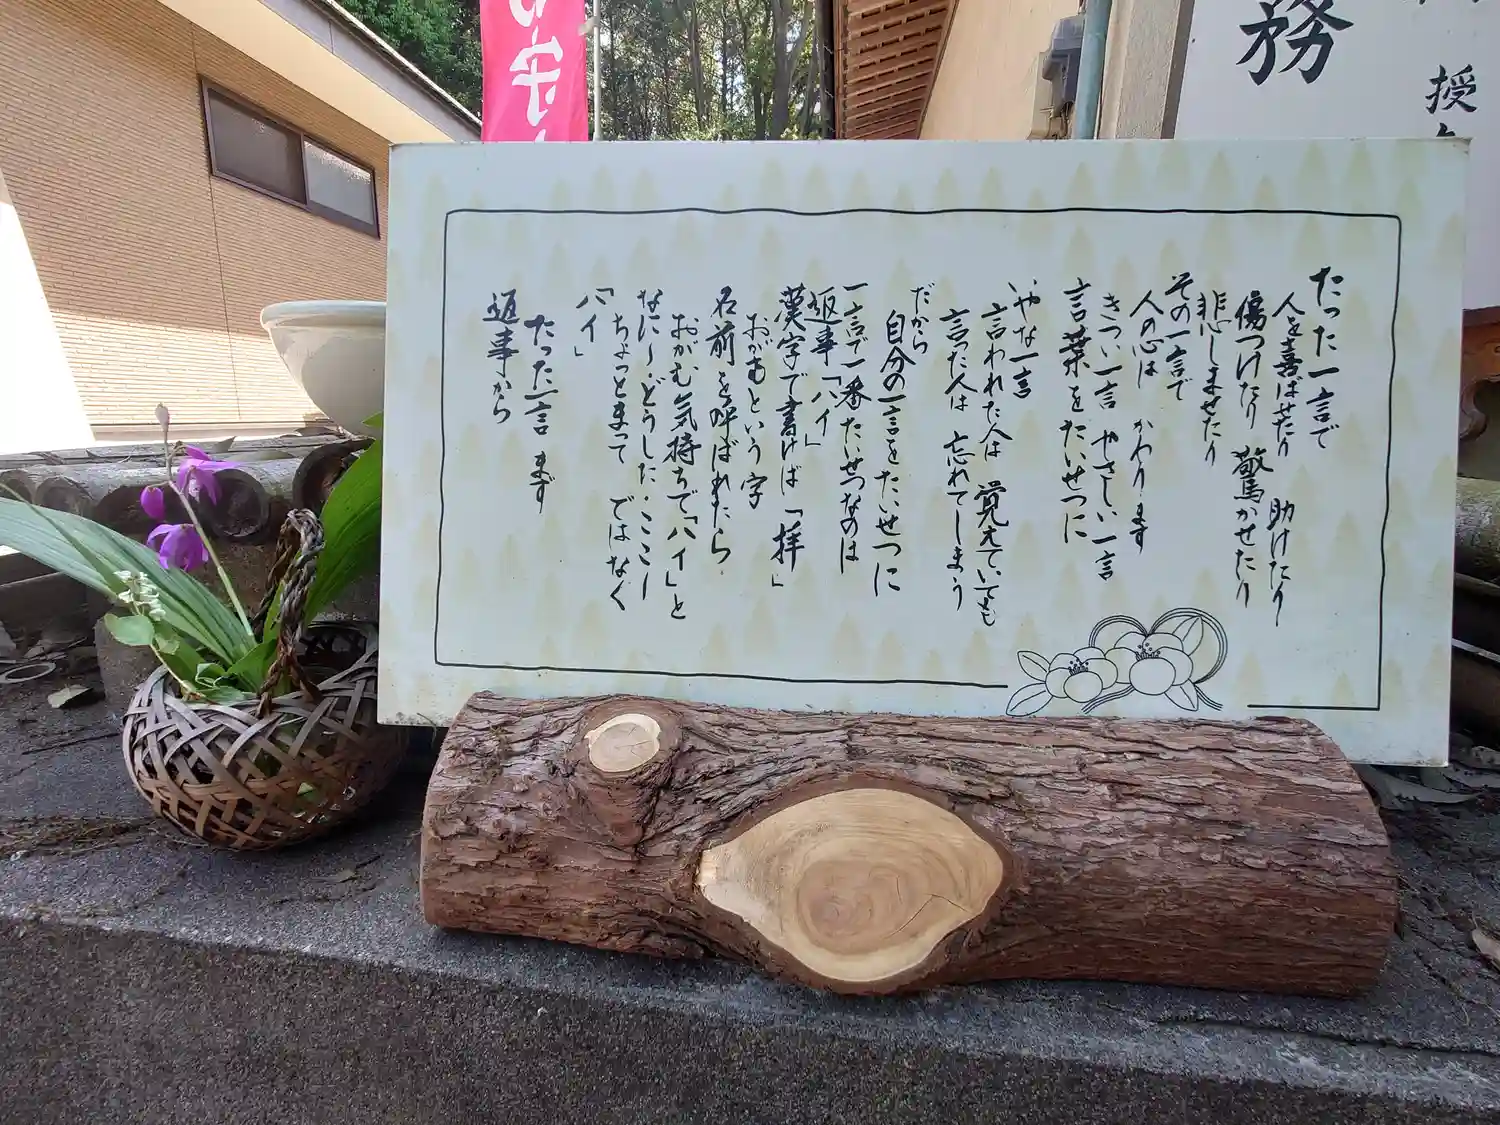 たった一言で
人を喜ばせたり 助けたり
傷つけたり 驚かせたり
悲しませたり
その一言で
人の心は かわります
きつい一言 やさしい一言
言葉をたいせつに
いやな一言
言われた人は 覚えていても
言った人は 忘れてしまう
だから
自分の一言をたいせつに
一言で一番たいせつなのは
返事「ハイ」
漢字で書けば「拝」
おがむという字
名前を呼ばれたら
おがむ気持ちで「ハイ」と
なに〜・どうした・ここー
ちょっとまって ではなく
「ハイ」
たった一言 まず
返事から
務
授
守